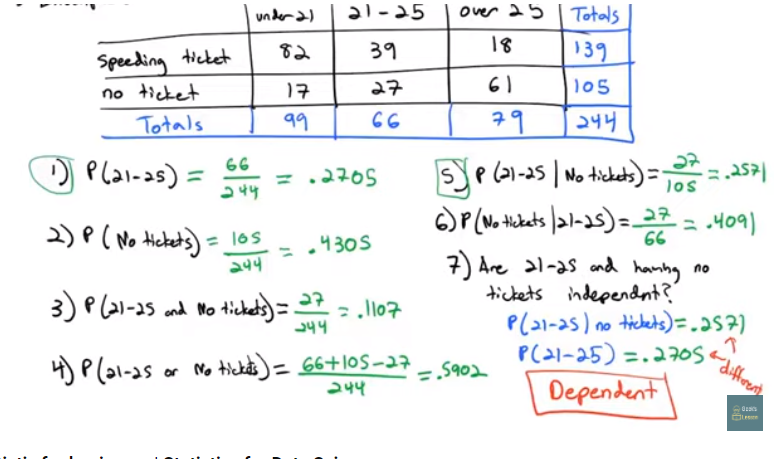 under 21 21-25 over 25 Totals
Speeding ticket 82 39 18 139
no ticket 17 27 61 105
Totals 99 66 79 244
1) P(21-25) = 66/244 = .2705
2) P(No tickets) = 105/244 = .4305
3) P(21-25 and No tickets) = 27/244 = .1107
4) P(21-25 or No tickets) = 66+105-27/244 = .5902
5) P(21-25 | No tickets) = 27/105 = .2571
6) P(No tickets | 21-25) = 27/66 = .4091
7) Are 21-25 and having no
tickets independnt?
P(21-25 | no tickets) = .2571
P(21-25) = .2705 different
Dependent